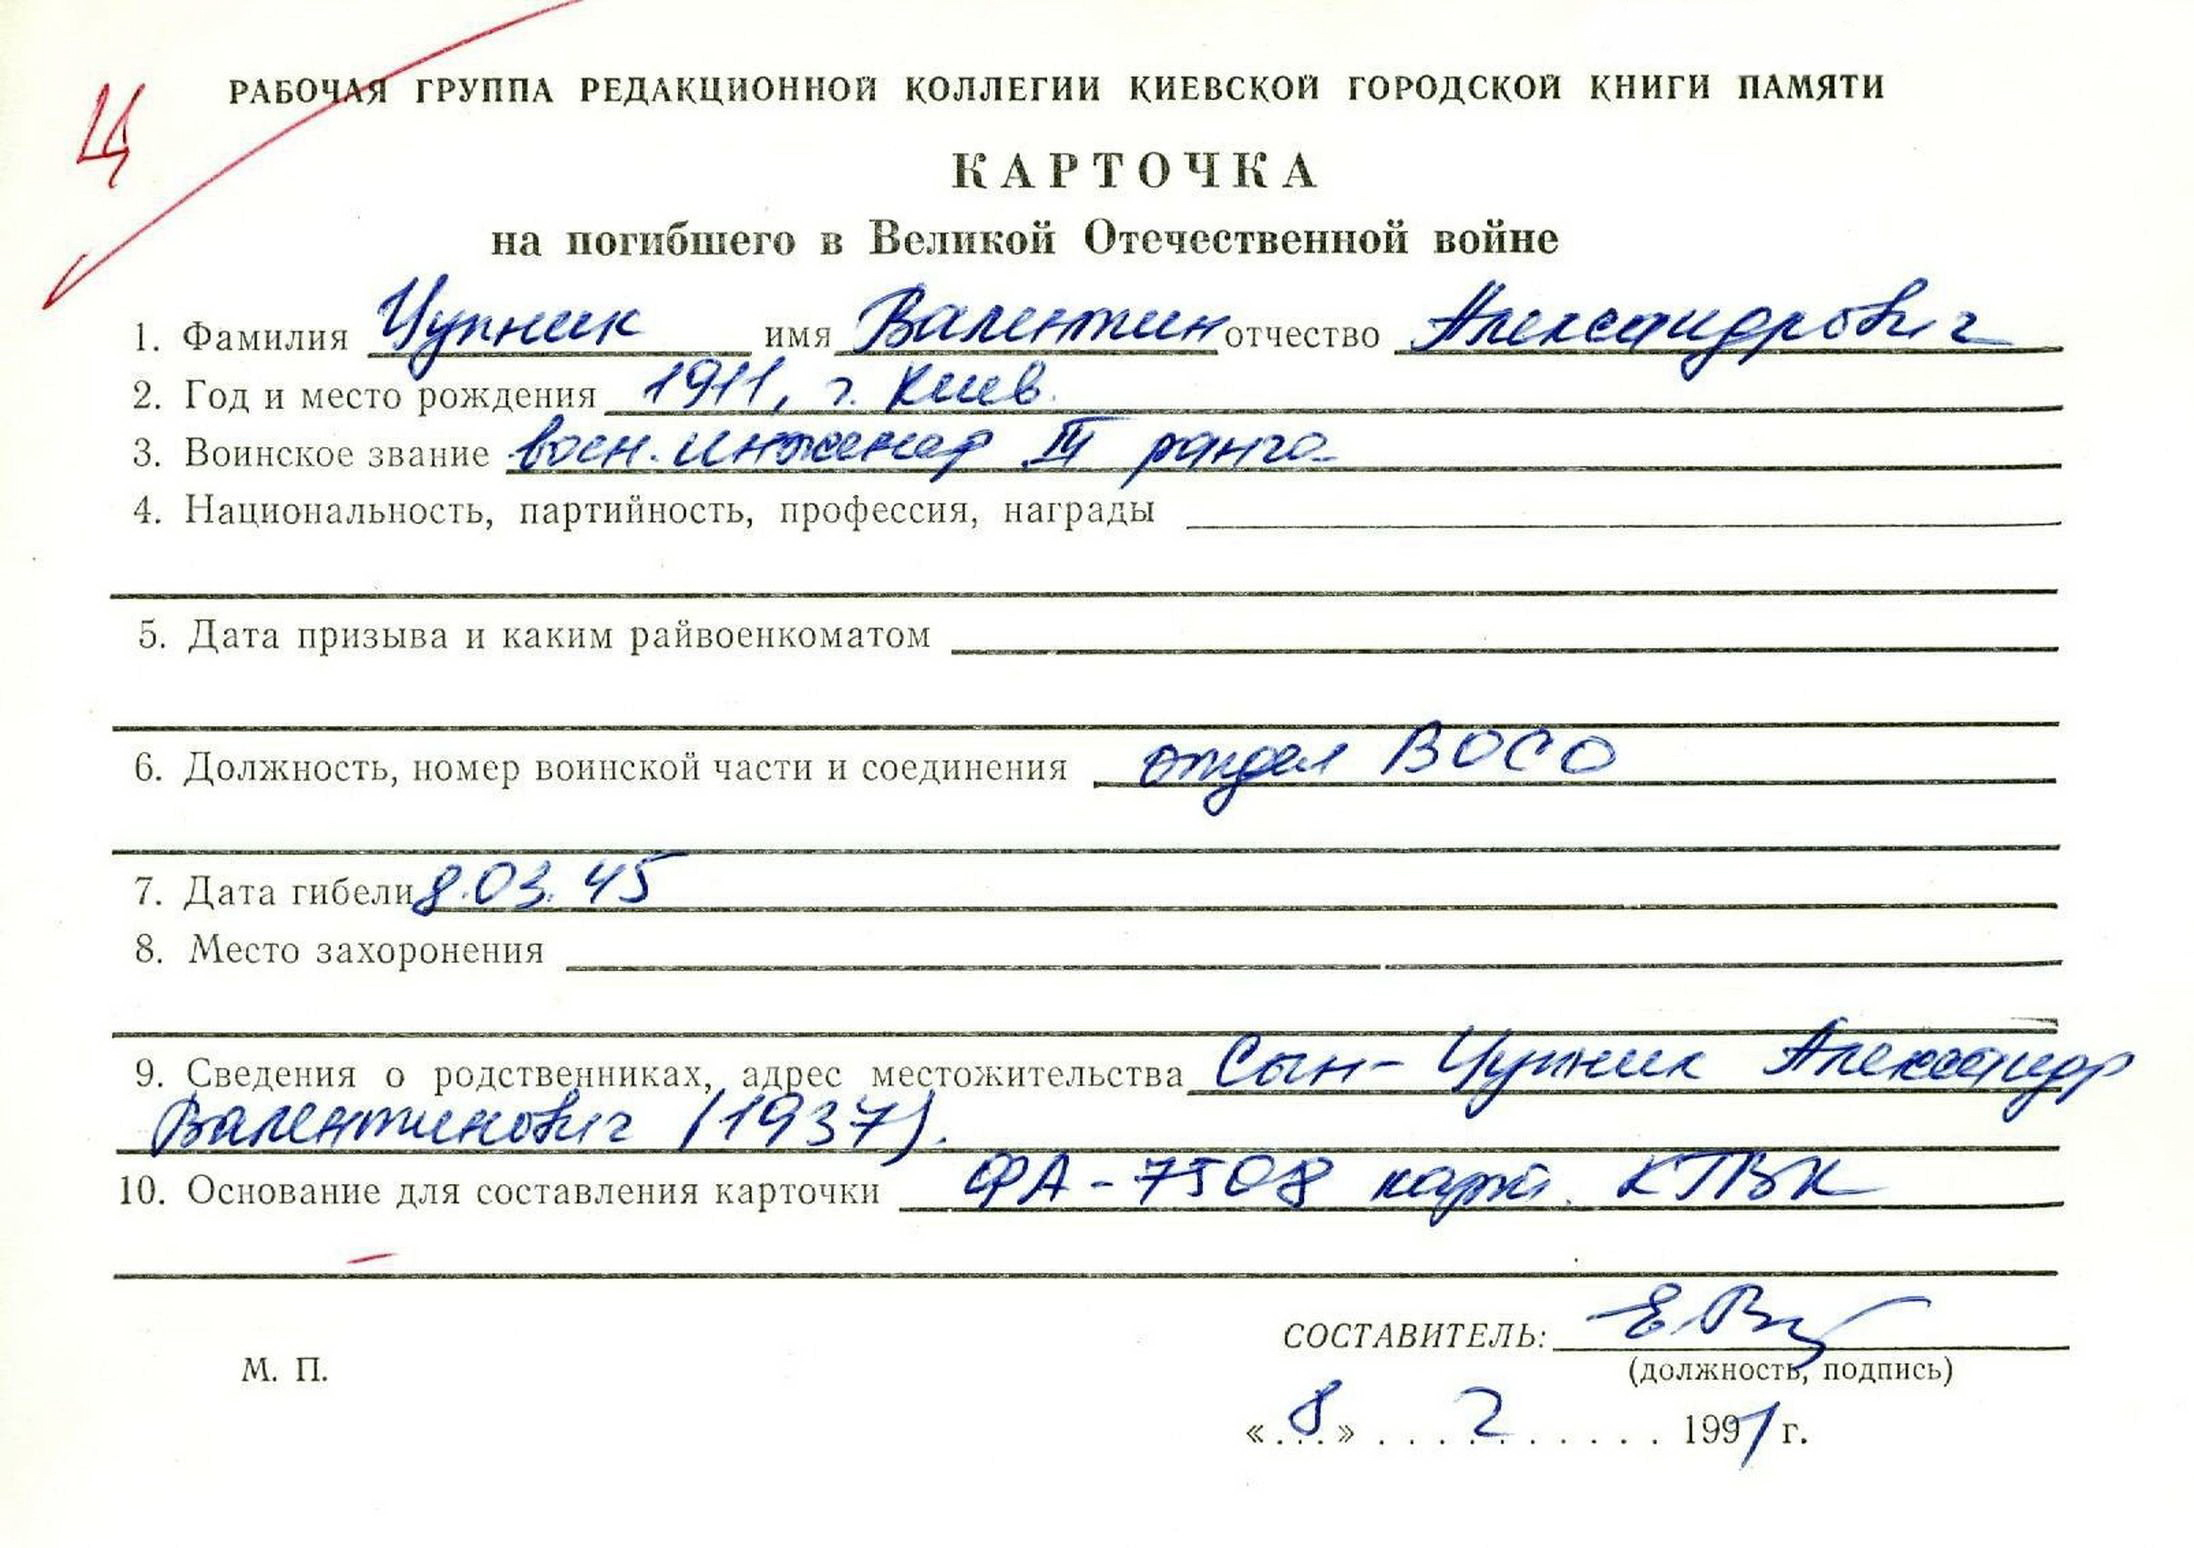 Ц
РАБОЧАЯ ГРУППА РЕДАКЦИОННОЙ КОЛЛЕГИИ КИЕВСКОЙ ГОРОДСКОЙ КНИГИ ПАМЯТИ
КАРТОЧКА
на погибшего в Великой Отечественной войне
1. Фамилия Цупник имя Валентин отчество Александрович
2. Год и место рождения 1911, г. Киев.
3. Воинское звание воен. инженер III ранга
4. Национальность, партийность, профессия, награды
5. Дата призыва и каким райвоенкоматом
6. Должность, номер воинской части и соединения отдел ВОСО
7. Дата гибели 8.03.45
8. Место захоронения
9. Сведения о родственниках, адрес местожительства Сын - Цупник Александр
Валентинович (1937).
10. Основание для составления карточки ФА-7508 карт. КГВК
СОСТАВИТЕЛЬ:
М. П.
(должность, подпись)
«8» 2 1991 г.